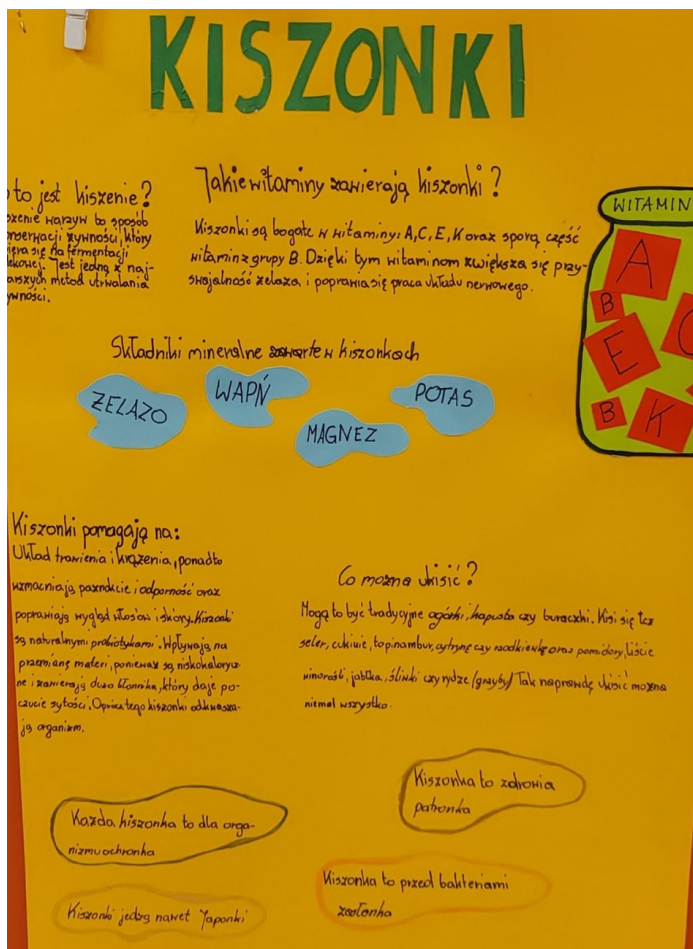 KISZONKI
to jest kiszenie?
szenie warzyw to sposób
nserwacji żywności, który
iera się na fermentacji
lekowej. Jest jedną z naj-
arszych metod utrwalania
ywności.
Jakie witaminy zawierają kiszonki?
Kiszonki są bogate w witaminy: A, C, E, K oraz sporą część
witamin z grupy B. Dzięki tym witaminom zwiększa się przy-
swajalność żelaza, i poprawia się praca układu nerwowego.
WITAMIN
A
B
E
B
K
Składniki mineralne zawarte w kiszonkach
ŻELAZO
WAPŃ
MAGNEZ
POTAS
Kiszonki pomagają na:
Układ trawienia i krążenia, ponadto
wzmacniają paznokcie i odporność oraz
poprawiają wygląd włosów i skóry. Kiszonki
są naturalnymi probiotykami. Wpływają na
przemianę materi, ponieważ są niskokalorycz-
ne i zawierają dużo błonnika, który daje po-
czucie sytości. Oprócz tego kiszonki odkwasza-
ją organizm.
Co można ukisić?
Mogą to być tradycyjne ogórki, kapusta czy buraczki. Kisi się też
seler, cukinie, topinambur, cytrynę czy rzodkiewkę oraz pomidory, liście
winorośli, jabłka, śliwki czy rydze (grzyby) Tak naprawdę ukisić można
niemal wszystko.
Każda kiszonka to dla orga-
nizmu ochronka
Kiszonka to zdrowia
patronka
Kiszonki jedzą nawet Japonki
Kiszonka to przed bakteriami
zasłonka